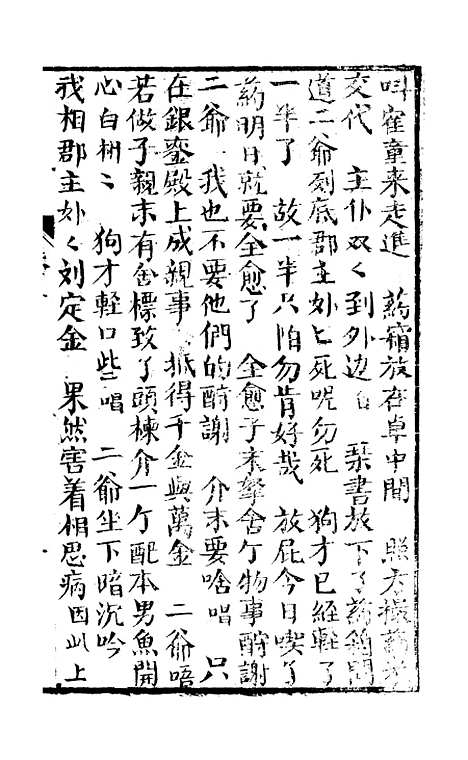 叫崔童来走進　葯箱放在卓中間　照方撮葯
交代　主仆双〱到外边　琴書放下了葯箱問
道二爺到底郡主外匕死呢勿死　狗才已經輕了
一半了　故一半只怕勿肯好哉　放屁今日喫了
葯明日就要全愈了　全愈子末拿舍亇物事酧謝
二爺　我也不要他們的酧謝　介末要啥唱　只
在銀鑾殿上成親事　抵得千金與萬金　二爺唔
若做子親末有舍標致了頭楝介一亇配本男魚開
心白栦〻　狗才輕口些唱　二爺坐下暗沉吟
我相郡主外〱刘定金　果然害着相思病因此上